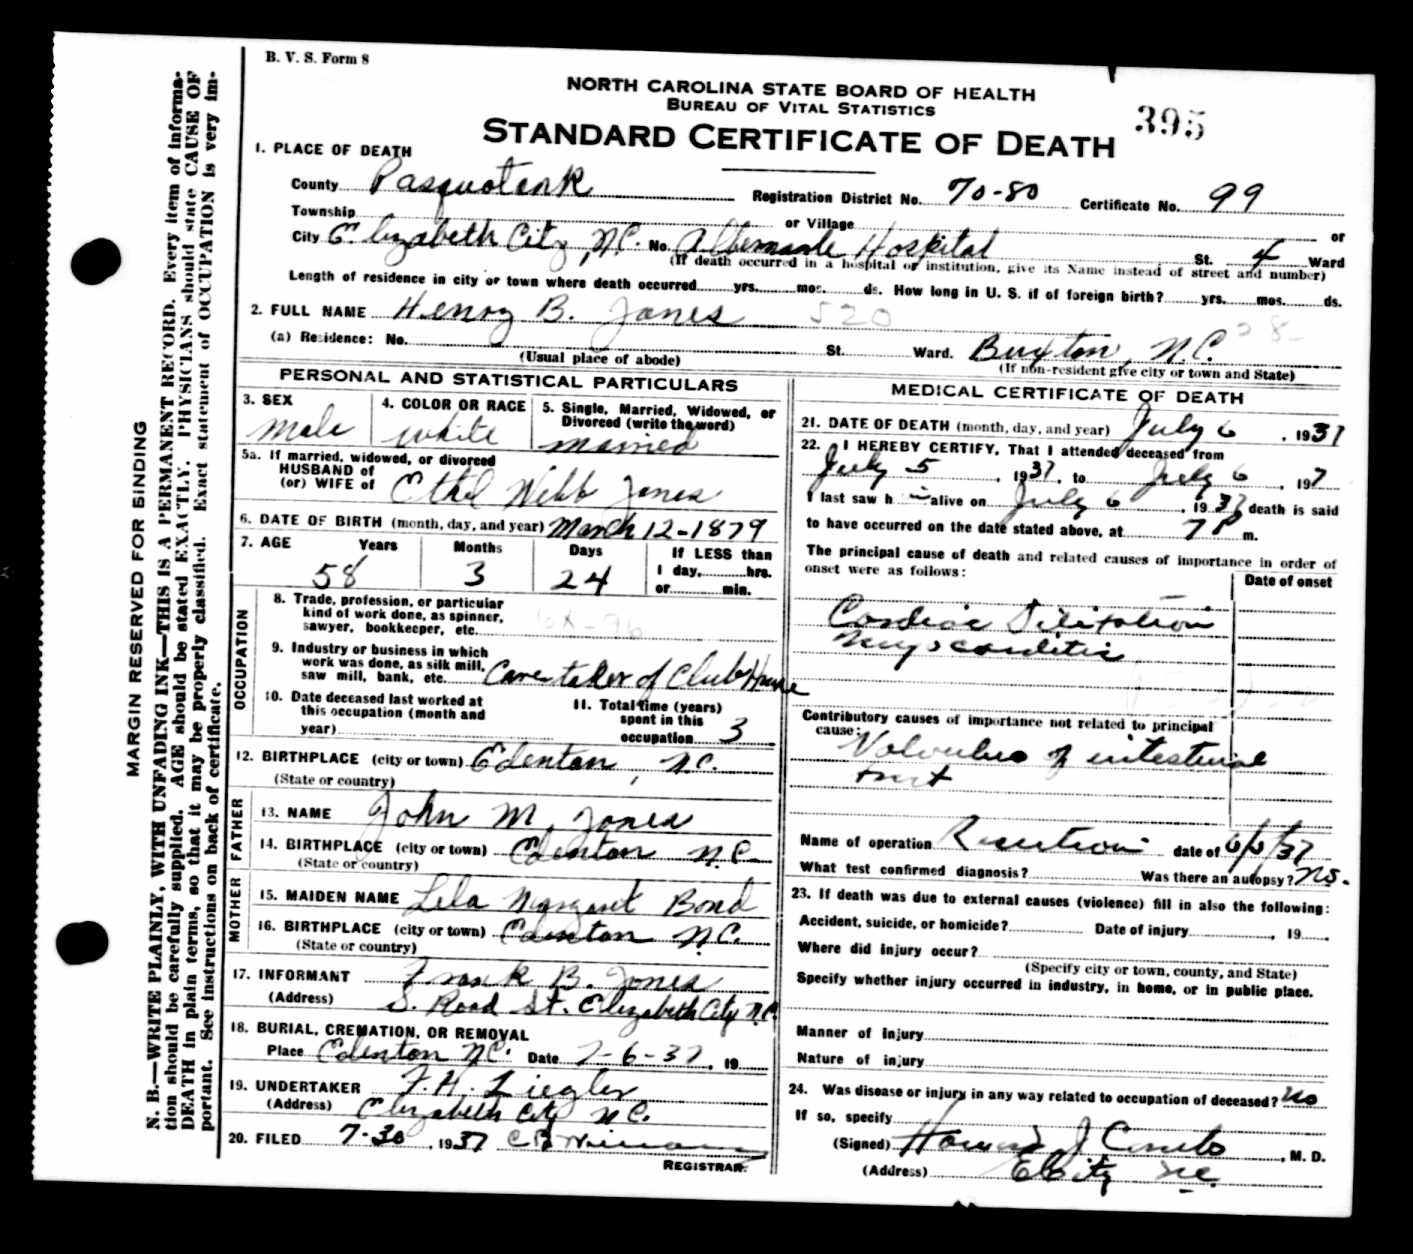 B. V. S. Form 8
NORTH CAROLINA STATE BOARD OF HEALTH
BUREAU OF VITAL STATISTICS
STANDARD CERTIFICATE OF DEATH
395
1. PLACE OF DEATH
County Pasquotank Registration District No. 70-80 Certificate No. 99
Township or Village or
City Elizabeth City, N.C. No. Hospital St. 4 Ward
(If death occurred in a hospital or institution, give its Name instead of street and number)
Length of residence in city or town where death occurred yrs. mos. ds. How long in U. S. if of foreign birth? yrs. mos. ds.
2. FULL NAME Henry B. Jones 520
(a) Residence: No. St. Ward. Buxton, N.C.
(Usual place of abode) (If non-resident give city or town and State)
PERSONAL AND STATISTICAL PARTICULARS
3. SEX 4. COLOR OR RACE 5. Single, Married, Widowed, or Divorced (write the word)
Male White Married
5a. If married, widowed, or divorced
HUSBAND of
(or) WIFE of Ethel Webb Jones
6. DATE OF BIRTH (month, day, and year) March 12-1879
7. AGE Years Months Days If LESS than
58 3 24 1 day, hrs.
or min.
OCCUPATION
8. Trade, profession, or particular
kind of work done, as spinner,
sawyer, bookkeeper, etc.
9. Industry or business in which
work was done, as silk mill,
saw mill, bank, etc. Caretaker of Club House
10. Date deceased last worked at
this occupation (month and
year)
11. Total time (years)
spent in this
occupation 3
12. BIRTHPLACE (city or town) Edenton, N.C.
(State or country)
FATHER
13. NAME John M. Jones
14. BIRTHPLACE (city or town) Edenton N.C.
(State or country)
MOTHER
15. MAIDEN NAME Lela Margaret Bond
16. BIRTHPLACE (city or town) Edenton N.C.
(State or country)
17. INFORMANT Frank B. Jones
(Address) S. Road St. Elizabeth City N.C.
18. BURIAL, CREMATION, OR REMOVAL
Place Edenton N.C. Date 7-6-37, 19
19. UNDERTAKER F. H. Ziegler
(Address) Elizabeth City N.C.
20. FILED 7-30, 1937
REGISTRAR.
MEDICAL CERTIFICATE OF DEATH
21. DATE OF DEATH (month, day, and year) July 6, 1937
22. I HEREBY CERTIFY, That I attended deceased from
July 5, 1937, to July 6, 1937
I last saw h alive on July 6, 1937 death is said
to have occurred on the date stated above, at 7 P m.
The principal cause of death and related causes of importance in order of
onset were as follows:
Date of onset
Cardiac Dilitation
Myocarditis
Contributory causes of importance not related to principal
cause:
Volvulus of intestinal
tract
Name of operation Resection date of 6/6/37
What test confirmed diagnosis? Was there an autopsy? No.
23. If death was due to external causes (violence) fill in also the following:
Accident, suicide, or homicide? Date of injury, 19
Where did injury occur?
(Specify city or town, county, and State)
Specify whether injury occurred in industry, in home, or in public place.
Manner of injury
Nature of injury
24. Was disease or injury in any way related to occupation of deceased? No
If so, specify
(Signed) Howard J Combs, M. D.
(Address) E City N.C.
MARGIN RESERVED FOR BINDING
N. B.—WRITE PLAINLY, WITH UNFADING INK—THIS IS A PERMANENT RECORD. Every item of informa-
tion should be carefully supplied. AGE should be stated EXACTLY. PHYSICIANS should state CAUSE OF
DEATH in plain terms, so that it may be properly classified. Exact statement of OCCUPATION is very im-
portant. See instructions on back of certificate.